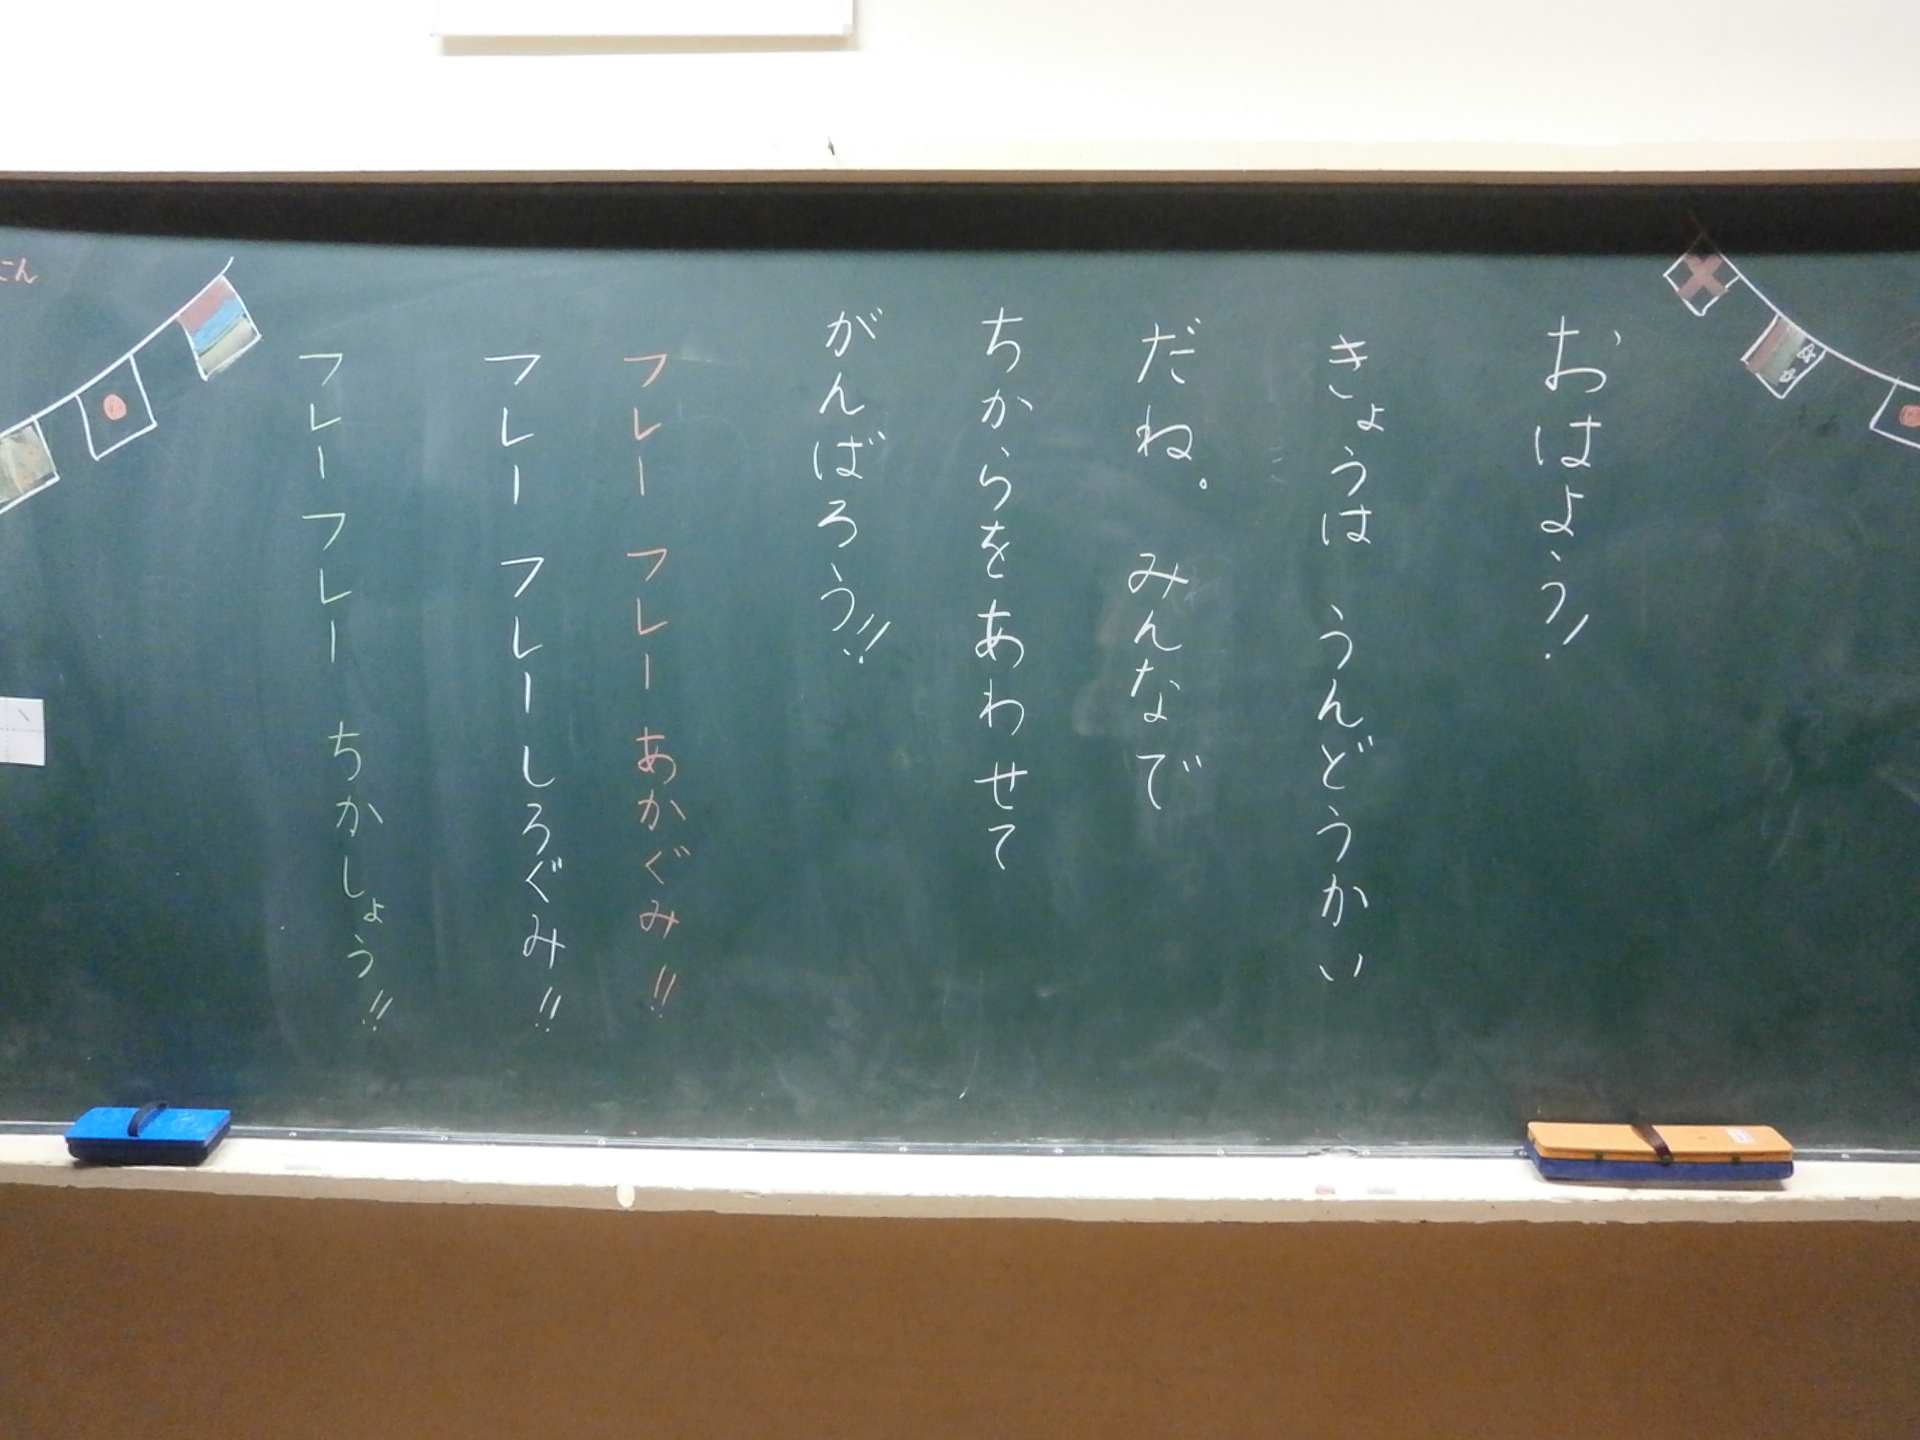 おはよう!
きょうは うんどうかい
だね。 みんなで
ちからをあわせて
がんばろう!!
フレー フレー あかぐみ!!
フレー フレーしろぐみ!!
フレーフレー ちかしょう!!